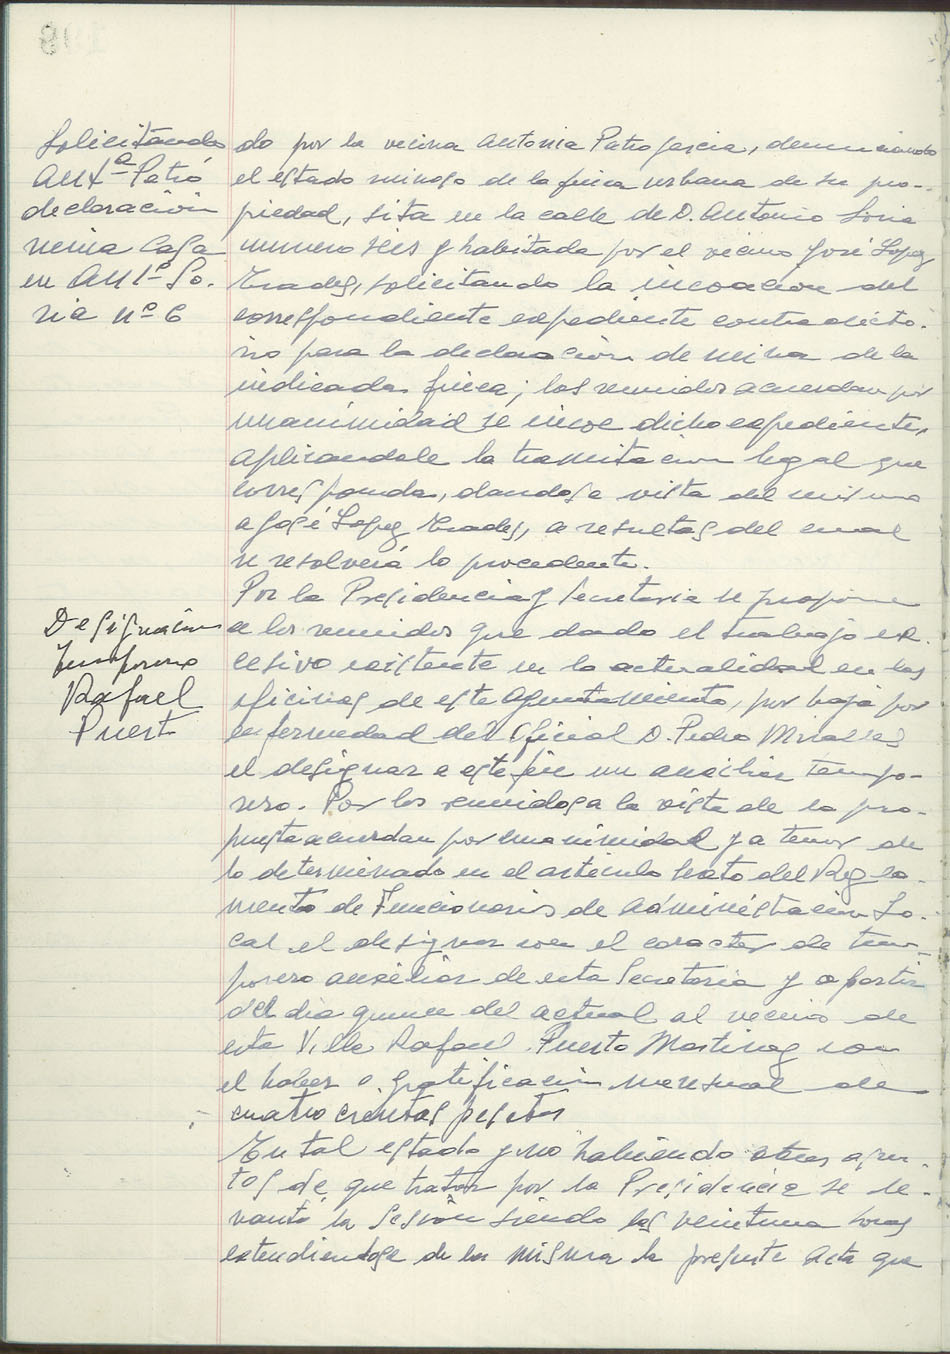 Solicitando
Antª Patró
declaración
ruina Casa
en Antº So-
ria nº 6
do por la vecina Antonia Patro Garcia, denunciando
el estado ruinoso de la finca urbana de su pro-
piedad, sita en la calle de D. Antonio Soria
numero seis y habitada por el vecino José Lopez
solicitando la incoacion del
correspondiente expediente contradicto-
rio para la declaracion de ruina de la
indicada finca; los reunidos acuerdan por
unanimidad se incoe dicho expediente,
aplicandole la tramitacion legal que
corresponda, dandose vista del mismo
a José Lopez a resultas del cual
se resolverá lo procedente.
Designacion
Temporero
Rafael
Puerto
Por la Presidencia y Secretaria se propone
a los reunidos que dado el trabajo ex-
cesivo existente en la actualidad en las
oficinas de este Ayuntamiento, por baja por
enfermedad del Oficial D. Pedro Miralles
el designar a este fin un auxiliar tempo-
rero. Por los reunidos a la vista de la pro-
puesta acuerdan por unanimidad y a tenor de
lo determinado en el articulo sexto del Regla-
mento de Funcionarios de Administracion Lo-
cal el designar con el caracter de tem-
porero auxiliar de esta Secretaria y a partir
del dia quince del actual al vecino de
esta Villa Rafael Puerto Martinez con
el haber o gratificacion mensual de
cuatrocientas pesetas
En tal estado y no habiendo otros asun-
tos de que tratar por la Presidencia se le-
vantó la Sesión siendo las veintiuna horas
extendiendose de la misma la presente Acta que